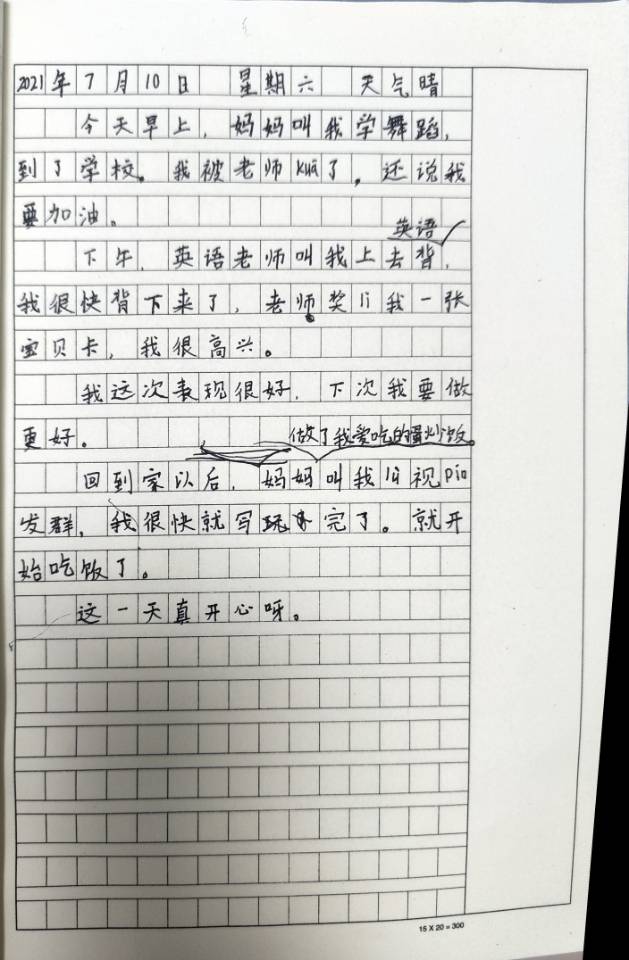 2021年7月10日 星期六 天气晴
今天早上，妈妈叫我学舞蹈，
到了学校。我被老师kuā了，还说我
要加油。
英语
下午，英语老师叫我上去背，
我很快背下来了，老师奖lì我一张
宝贝卡，我很高兴。
我这次表现很好，下次我要做
更好。
做了我爱吃的蛋炒饭。
回到家以后，妈妈叫我lù视pin
发群，我很快就写完了。就开
始吃饭了。
这一天真开心呀。
15 X 20 = 300